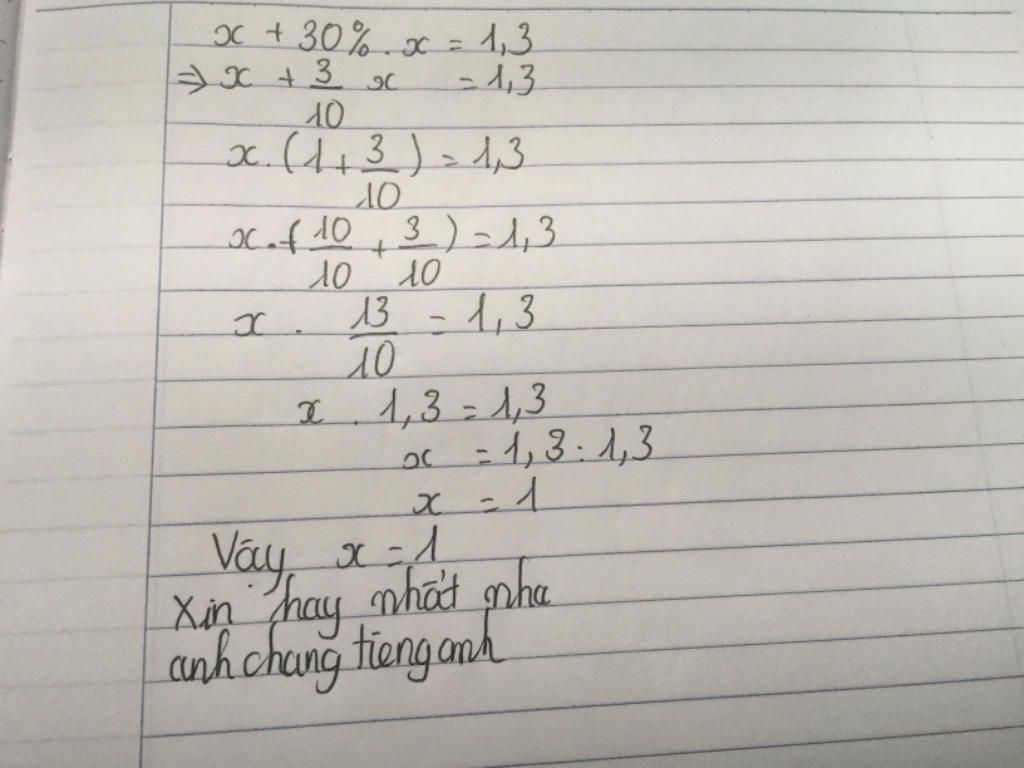 x + 30% . x = 1,3
⇒ x + 3/10 x = 1,3
x . (1 + 3/10) = 1,3
x . (10/10 + 3/10) = 1,3
x . 13/10 = 1,3
x . 1,3 = 1,3
x = 1,3 : 1,3
x = 1
Vậy x = 1
Xin hay nhất nha
anh chang tiêng anh